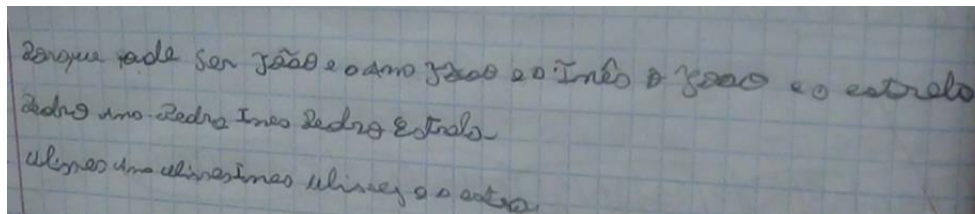 Porque pode ser João e o Ano João e o Inês o João e o estrelo
Pedro Ano. Pedro Ines Pedro Estrelo
Ulisses Ano ulisses Ines ulisses e o